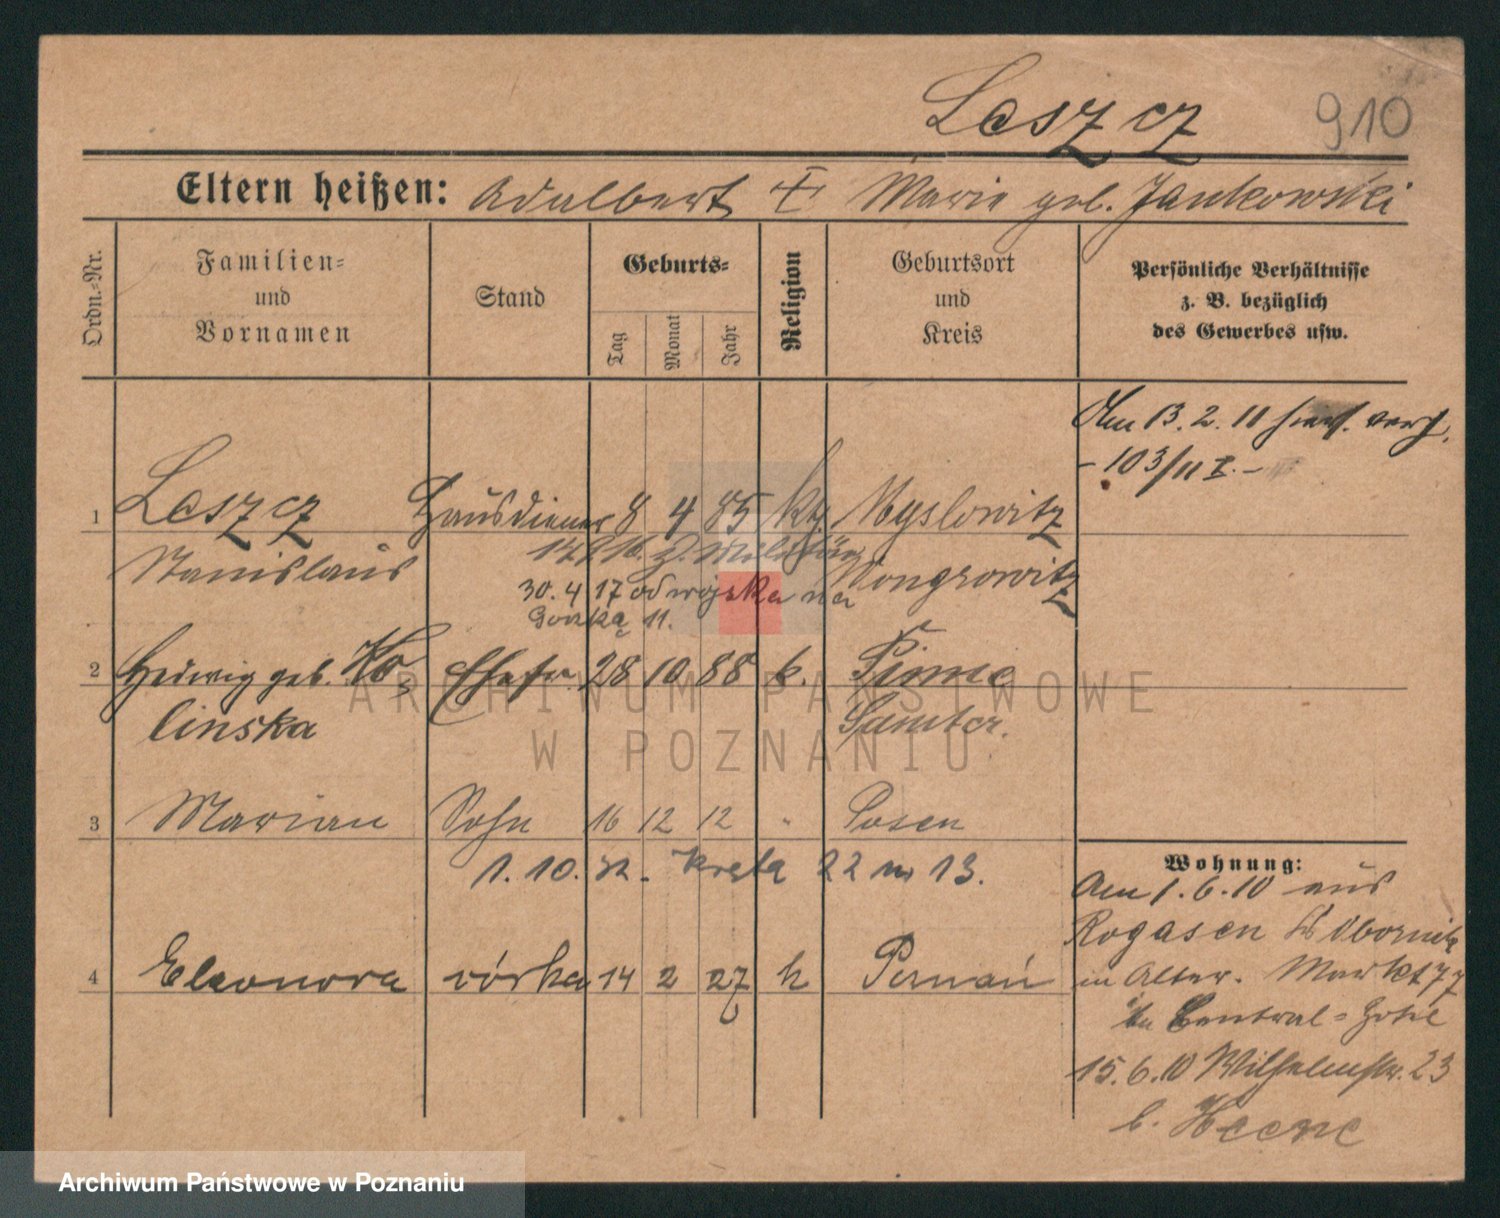 Leszcz 910
Eltern heißen: Adalbert Marie geb. Jankowski
Ordn.-Nr.
Familien-
und
Vornamen
Stand
Geburts-
Tag
Monat
Jahr
Religion
Geburtsort
und
Kreis
Persönliche Verhältnisse
z. B. bezüglich
des Gewerbes usw.
Am 13.2.11
- 103/11 I. -
1 Leszcz Hausdiener 8 4 85 kth Myslowitz
Stanislaus Wongrowitz
30.4 17 od wojska na
Gorzką 11.
2 Hedwig geb. Ko- Ehefr. 28 10 88 k. Pinne
linska Samter.
3 Marian Sohn 16 12 12 " Posen
1. 10. Kręta 22 m 13.
4 Eleonora córka 14 2 27 k Poznań
Wohnung:
Am 1.6.10 aus
Rogasen Obornik
in Alter. Markt 77
in Central-Hotel
15.6.10 Wilhelmstr. 23
b.
ARCHIWUM PAŃSTWOWE
W POZNANIU
Archiwum Państwowe w Poznaniu